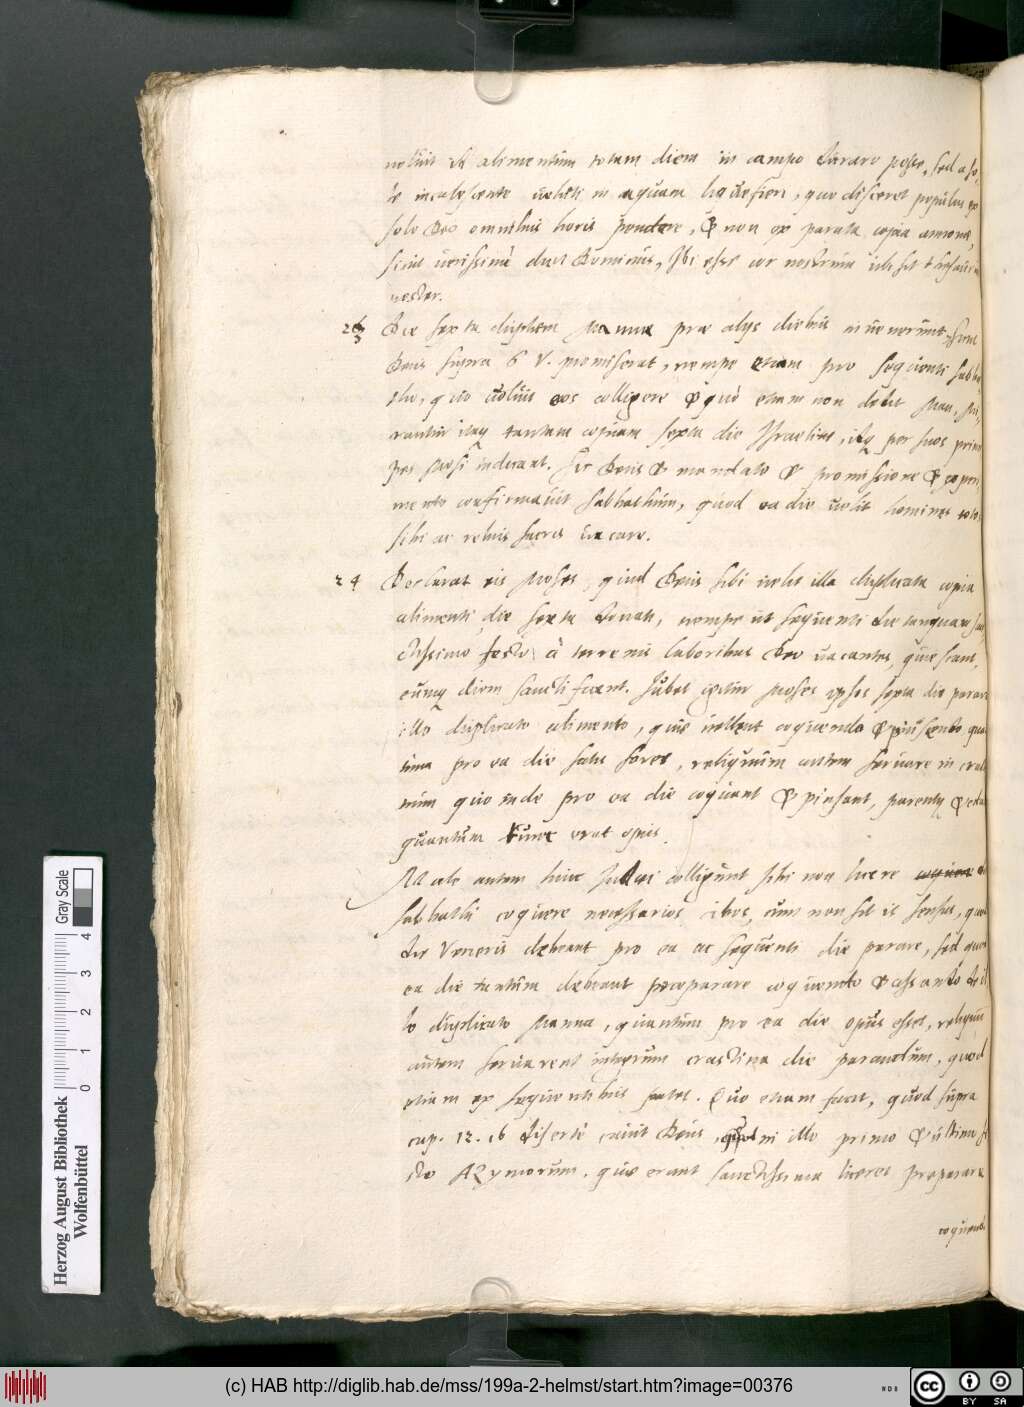 noluit ut alimentum totum diem in campo durare posse, sed a so,
le incalescente uelut in aquam liquefieri, quo disceret populus ex
solo Deo omnibus horis pendere, & non ex parata copia annonæ,
sicut uerissimè dicit Dominus, Ubi esset cor nostrum ibi sit thesaurus
noster.
Die sexta duplum Manna præ alijs diebus inuenerunt, sicut
Deus supra 5 V. promiserat, nempe etiam pro sequenti sabba
tho, quo uoluit eos colligere & quò etiam non dabit Man, Mi,
rantur itaq tantam copiam sexta die Israelitæ, itaq per suos prin
pes Mosi indicant. Sic Deus & mandato & promissione & experi
mento confirmauit sabbathum, quod ea die uelit homines totos
sibi ac rebus sacris uacare.
24 Declarat eis Moses, quid Deus sibi uelit illa duplicata copia
alimenti die sexta donati, nempe ut sequenti die tanquam san
ctissimo festo à terrenis laboribus Deo uacantes, quiescant,
eumq diem sanctificent. Jubet igitur Moses ipsos sexta die parare
illo duplicato alimento, quæ uellent coquendo & pinsendo quan
tum pro ea die satis foret, reliquum autem seruare in crasti
num quo inde pro ea die coquant & pinsant, parentq &
quantum tunc erat opus.
Male autem hinc Judæi colligunt sibi non licere
sabbathi coquere necessarios cibos, cum non sit is sensus, quod
die Veneris debeant pro ea ac sequenti die parare, sed quod
ea die tantum debeant præparare coquendo & assando de il
lo duplicato Manna, quantum pro ea die opus esset, reliquum
autem seruarent integrum crastina die parandum, quod
etiam ex sequentibus patet. Quo etiam facit, quod supra
cap. 12. 16 disertè cauit Deus, quod in illo primo & ultimo fe
sto Azymorum, quæ erant sanctissima liceret præparare
coquendo
(c) HAB http://diglib.hab.de/mss/199a-2-helmst/start.htm?image=00376
Herzog August Bibliothek
Wolfenbüttel
Gray Scale
0 1 2 3 4
cc BY SA